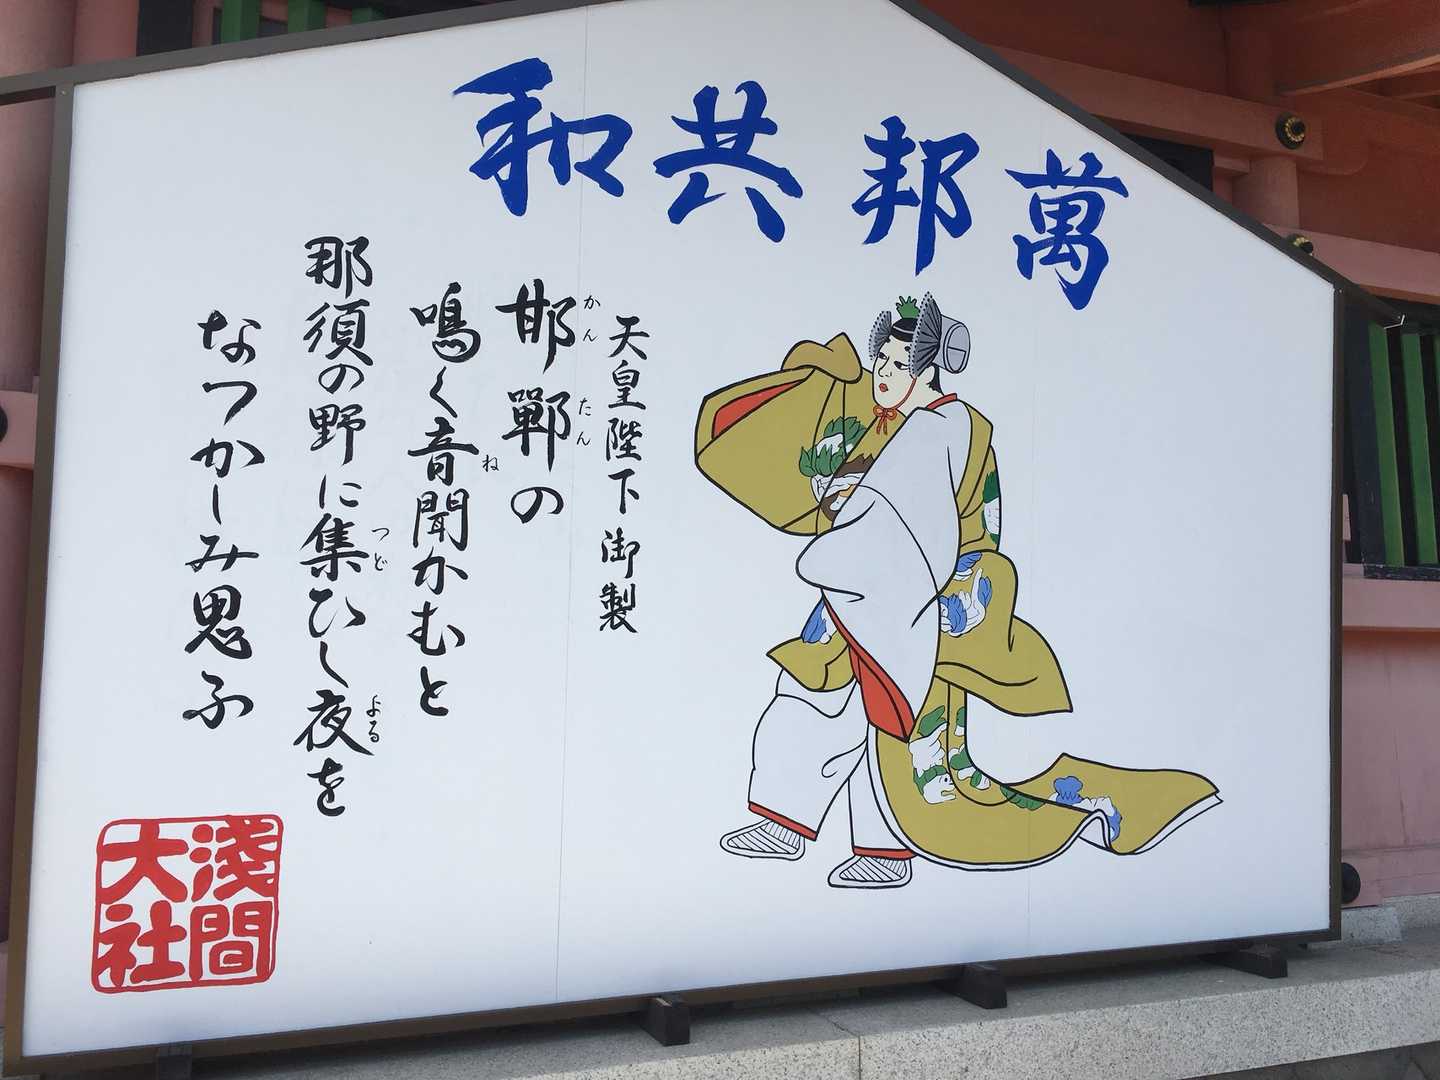 萬邦共和
天皇陛下御製
邯鄲の
かんたん
鳴く音聞かむと
ね
那須の野に集ひし夜を
つど
よる
なつかしみ思ふ
淺間
大社